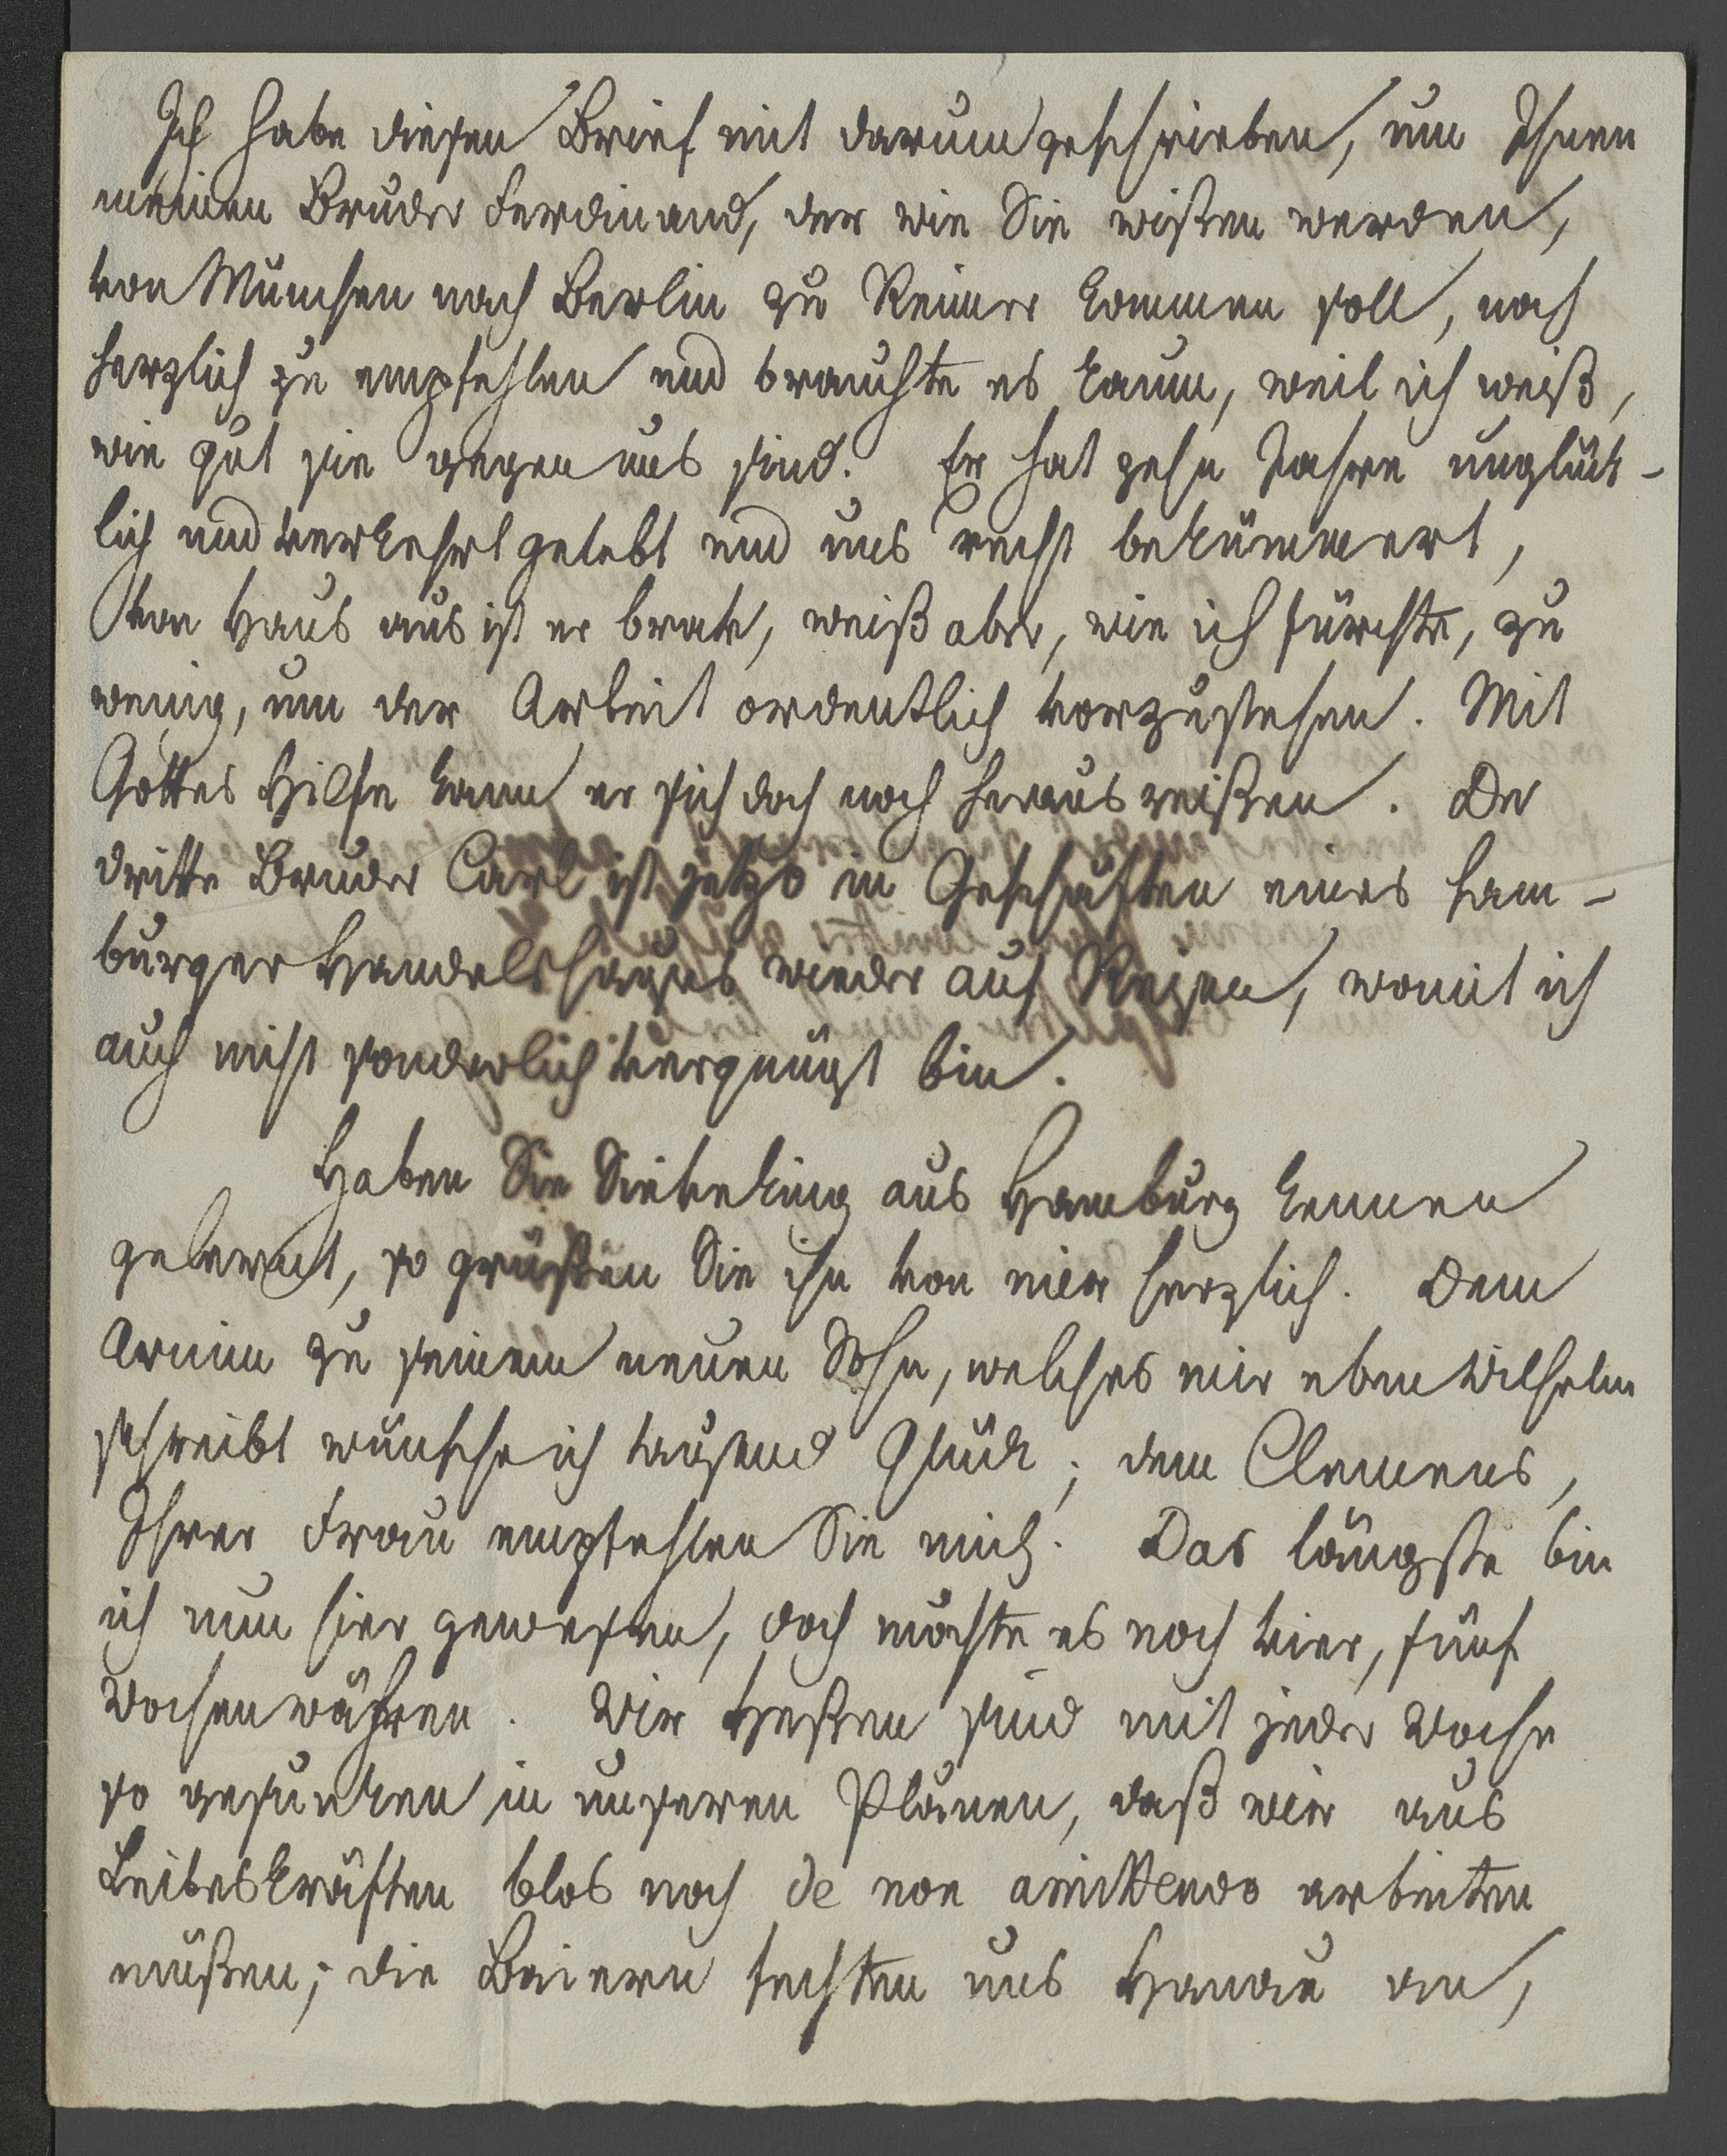 Ich habe diesen Brief mit darum geschrieben, um Ihnen
meinen Bruder Ferdinand, der wie Sie wißen werden,
von München nach Berlin zu Reimer kommen soll, noch
herzlich zu empfehlen und brauchte es kaum, weil ich weiß,
wie gut sie gegen uns sind. Er hat zehn Jahre unglück-
lich und verkehrt gelebt und uns recht bekümmert,
von Haus aus ist er brav, weiß aber, wie ich fürchte, zu
wenig, um der Arbeit ordentlich vorzustehen. Mit
Gottes Hilfe kann er sich doch noch herausreißen. Der
dritte Bruder Carl ist jetzo in Geschäften eines ham-
burger Handelshauses wieder auf Reisen, womit ich
auch nicht sonderlich vergnügt bin.
Haben Sie Sieveking aus Hamburg kennen
gelernt, so grüßen Sie ihn von mir herzlich. Dem
Arnim zu seinem neuen Sohn, welches mir eben Wilhelm
schreibt wünsche ich tausend Glück; dem Clemens,
Ihrer Frau empfehlen Sie mich. Das längste bin
ich nun hier gewesen, doch möchte es noch vier, fünf
Wochen währen. Wir Heßen sind mit jeder Woche
so gesunken in unseren Planen, daß wir aus
Leibeskräften blos noch de non amittendo arbeiten
müßen; die Baiern fechten uns Hanau an,